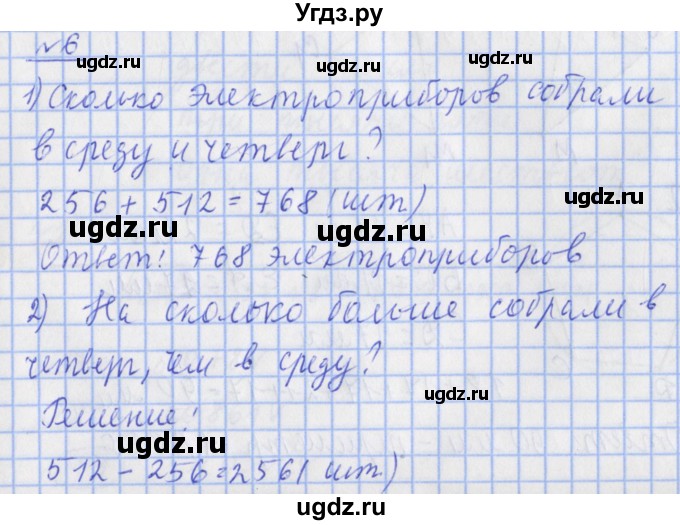 Угдз.ру
№6
ugdz.ru ugdz.ru
1) Сколько электроприборов собрали
ugdz.ru
в среду и четверг?
256 + 512 = 768 (шт)
ugdz.ru ugdz.ru
Ответ: 768 электроприборов
ugdz.ru
2) На сколько больше собрали в
ugdz.ru
четверг, чем в среду?
ugdz.ru ugdz.ru
Решение:
ugdz.ru
512 - 256 = 256 (шт.)
ugdz.ru